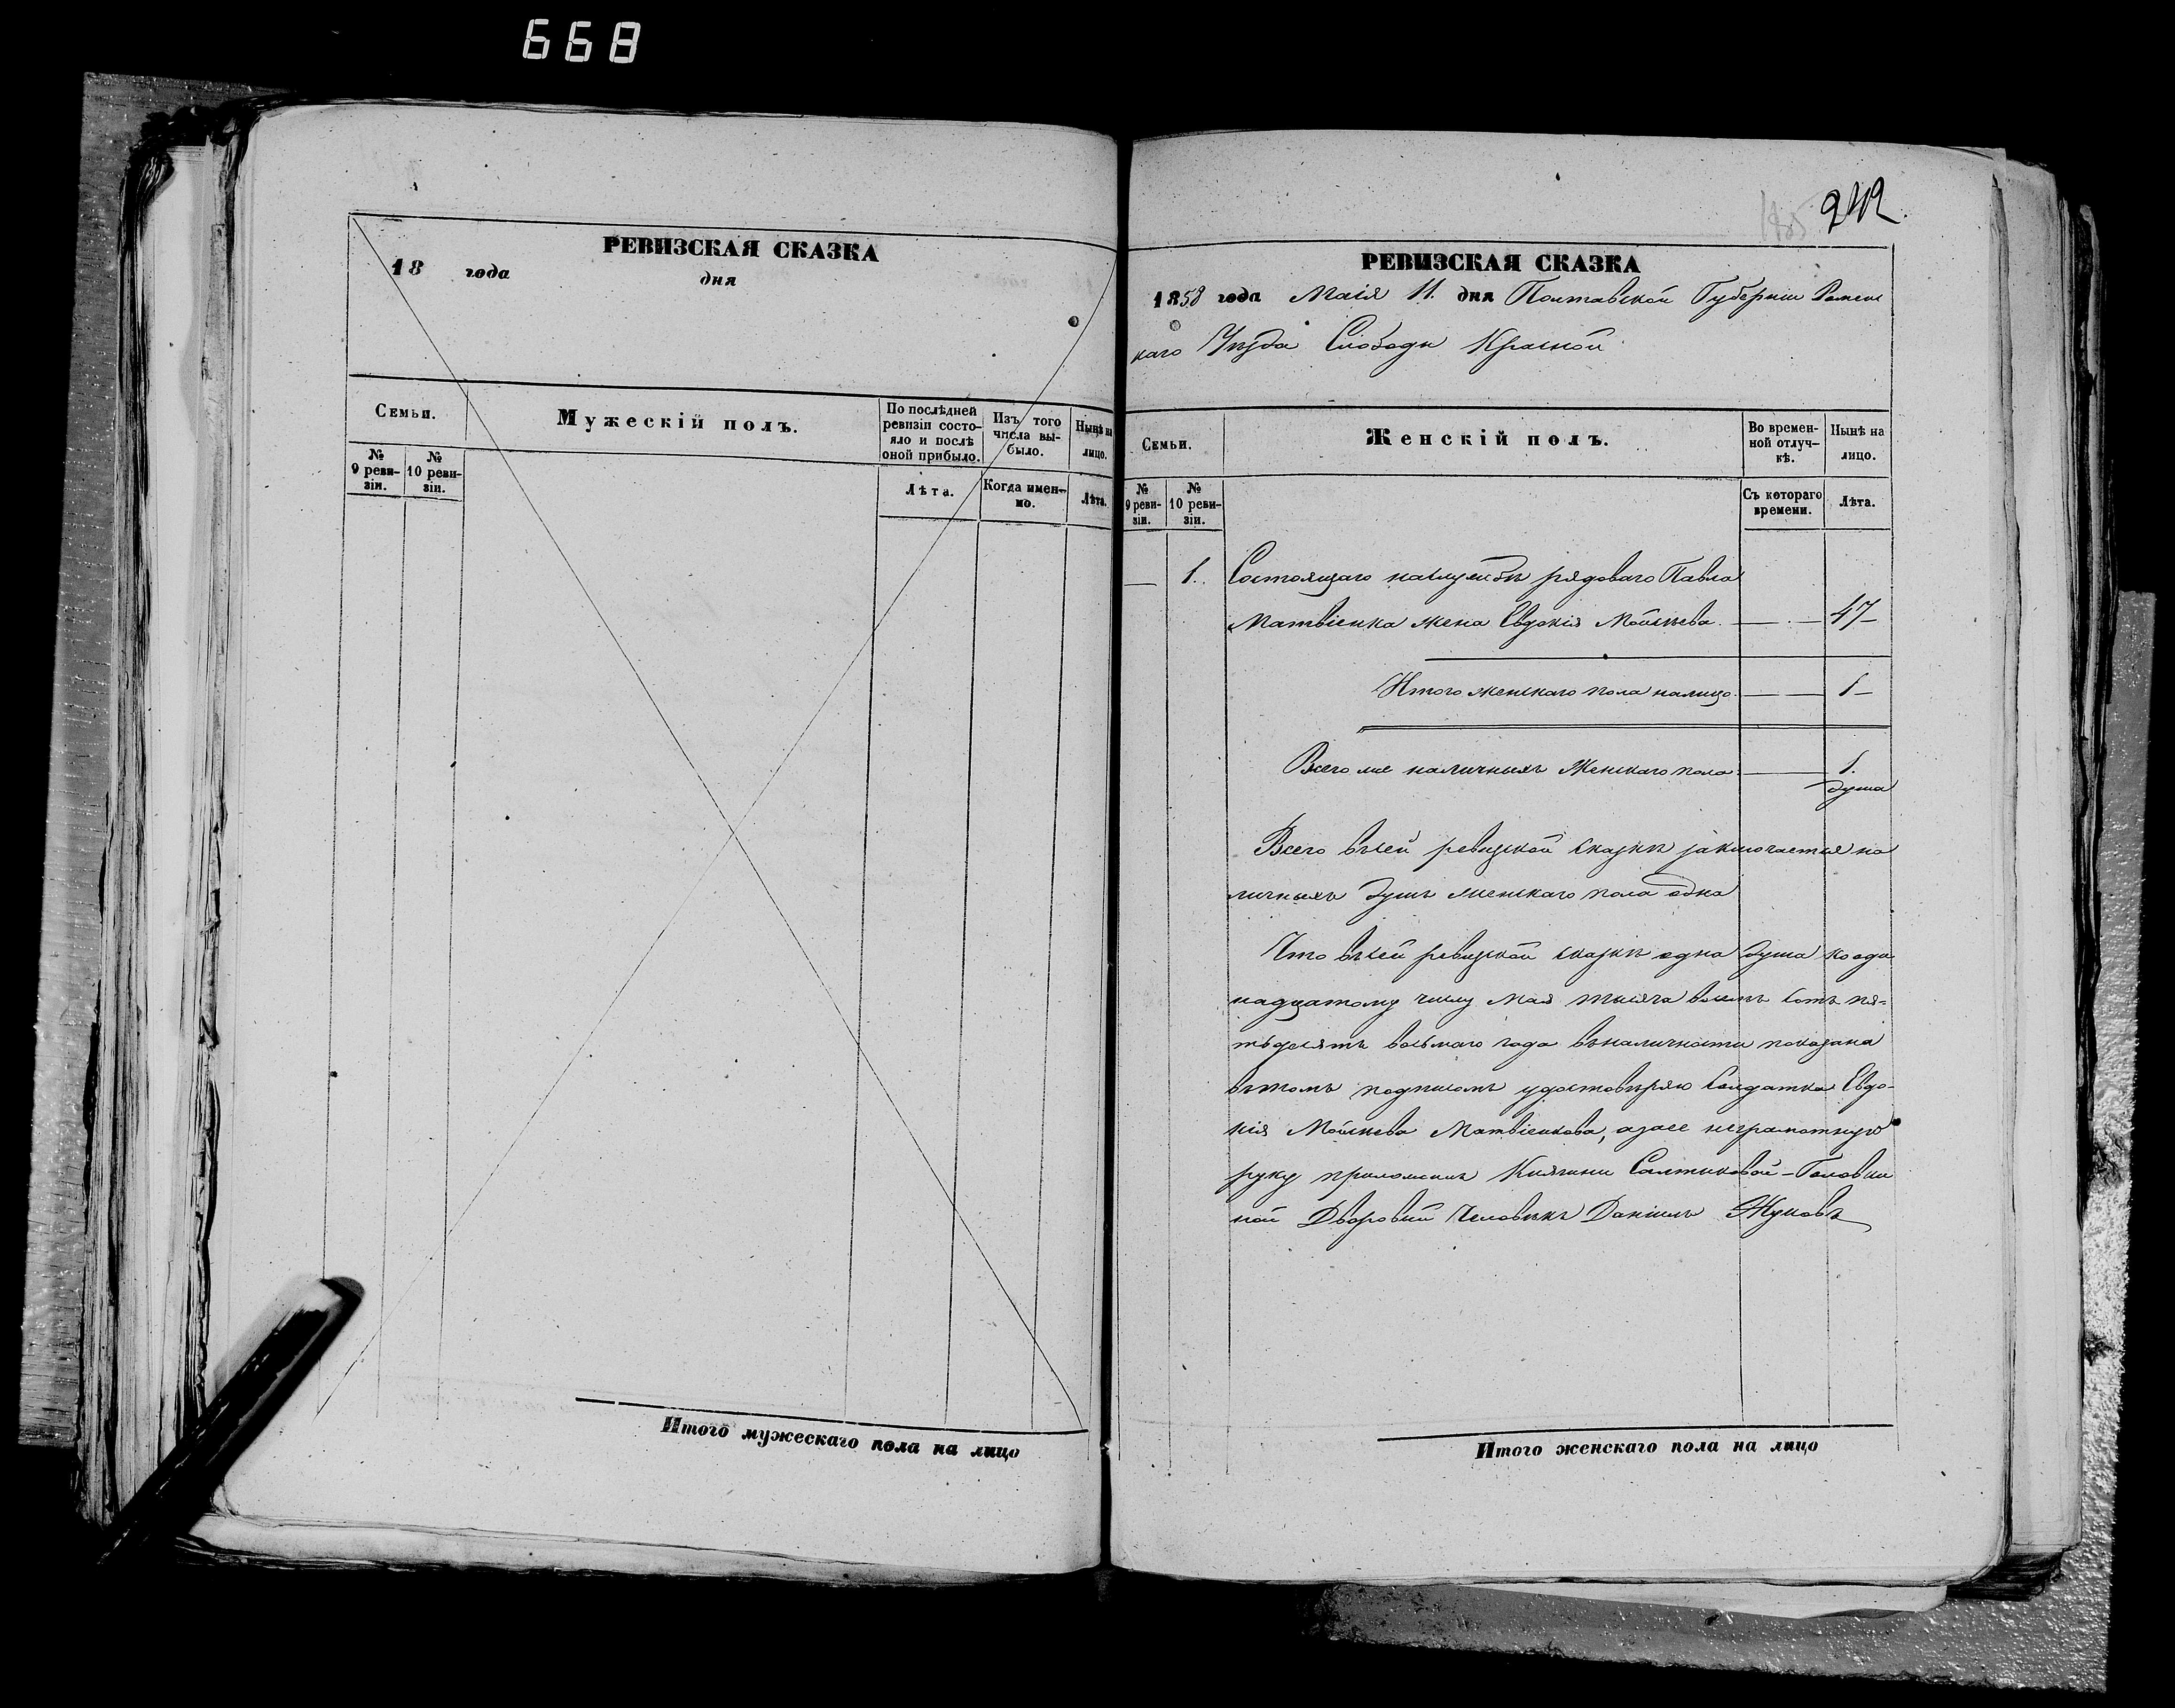 668
РЕВИЗСКАЯ СКАЗКА
18 года дня
Семьи.
Мужескій полъ.
По послѣдней ревизіи состояло и послѣ оной прибыло.
Изъ того числа выбыло.
Нынѣ на лицо.
№ 9 ревизіи.
№ 10 ревизіи.
Лѣта.
Когда именно.
Лѣта.
Итого мужескаго пола на лицо
185 242.
РЕВИЗСКАЯ СКАЗКА
1858 года Маія 11. дня Полтавской Губерніи Роменс
каго Уѣзда Слободы Красной
Семьи.
Женскій полъ.
Во временной отлучкѣ.
Нынѣ на лицо.
№ 9 ревизіи.
№ 10 ревизіи.
Съ котораго времени.
Лѣта.
— 1. Состоящаго наслужбѣ рядоваго Павла
Матвіенка жена Евдокія Мойсѣева. — 47
Итого женскаго пола налицо — 1
Всего же наличныхъ Женскаго пола — 1.
душа
Всего въсей ревизской сказкѣ заключается на
личныхъ душъ женскаго пола одна
Что въсей ревизской сказкѣ одна душа кооди
надцатому числу Мая тысяча восемь сотъ пя-
тьдесятъ восьмого года въналичности показана
вътомъ подписомъ удостовѣряю Солдатка Евдо-
кія Мойсѣева Матвіенкова, азаее неграмотную
руку приложилъ Княгини Салтыковой-Головки
ной Дворовый Человѣкъ Даніилъ Жуковъ
Итого женскаго пола на лицо